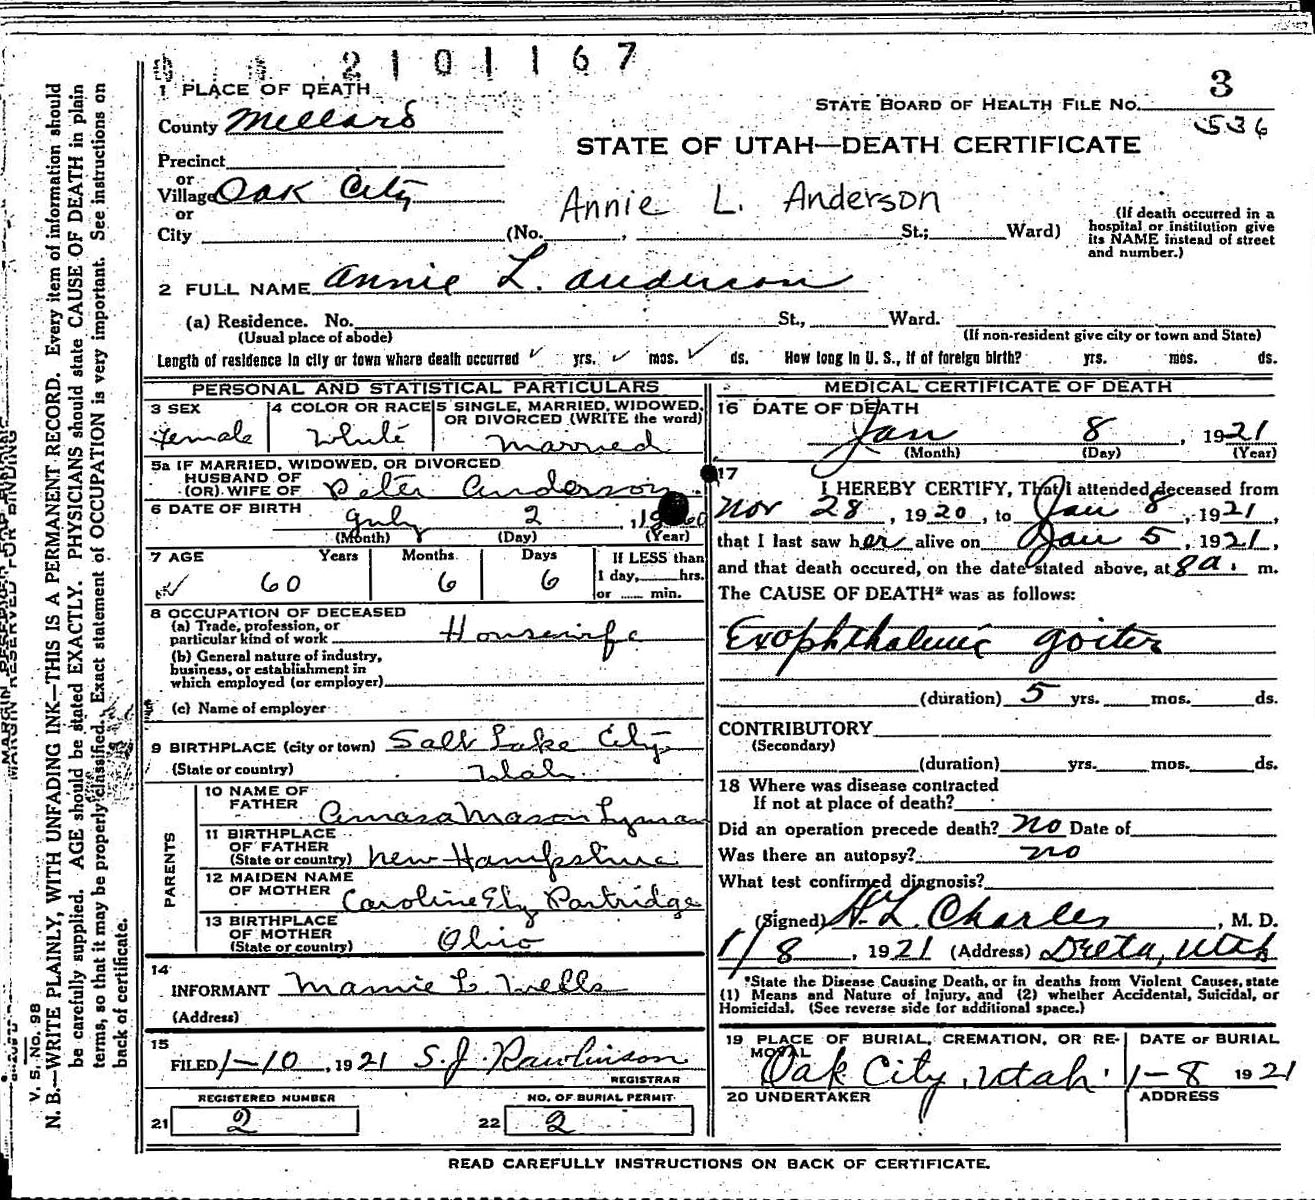 2101167
1 PLACE OF DEATH
3
STATE BOARD OF HEALTH FILE NO.
536
County Millard
STATE OF UTAH—DEATH CERTIFICATE
Precinct
or
Village Oak City
Annie L. Anderson
or
City (No. , St.; Ward)
(If death occurred in a
hospital or institution give
its NAME instead of street
and number.)
2 FULL NAME Annie L. Anderson
(a) Residence. No. St., Ward.
(Usual place of abode) (If non-resident give city or town and State)
Length of residence in city or town where death occurred ✓ yrs. ✓ mos. ✓ ds. How long in U. S., if of foreign birth? yrs. mos. ds.
PERSONAL AND STATISTICAL PARTICULARS
3 SEX
Female
4 COLOR OR RACE
White
5 SINGLE, MARRIED, WIDOWED,
OR DIVORCED (WRITE the word)
Married
5a IF MARRIED, WIDOWED, OR DIVORCED
HUSBAND OF
(OR) WIFE OF Peter Anderson
6 DATE OF BIRTH
July 2, 1860
(Month) (Day) (Year)
7 AGE Years Months Days If LESS than
60 6 6 1 day, hrs.
or min.
8 OCCUPATION OF DECEASED
(a) Trade, profession, or
particular kind of work Housewife
(b) General nature of industry,
business, or establishment in
which employed (or employer)
(c) Name of employer
9 BIRTHPLACE (city or town) Salt Lake City
(State or country) Utah
PARENTS
10 NAME OF
FATHER Amasa Mason Lyman
11 BIRTHPLACE
OF FATHER
(State or country) New Hampshire
12 MAIDEN NAME
OF MOTHER Caroline Ely Partridge
13 BIRTHPLACE
OF MOTHER
(State or country) Ohio
14
INFORMANT Mamie L. Wells
(Address)
15
FILED 1-10, 1921 S. J. Rawlinson
REGISTRAR
REGISTERED NUMBER
21 2
NO. OF BURIAL PERMIT
22 2
MEDICAL CERTIFICATE OF DEATH
16 DATE OF DEATH
Jan 8, 1921
(Month) (Day) (Year)
17
I HEREBY CERTIFY, That I attended deceased from
Nov 28, 1920, to Jan 8, 1921,
that I last saw her alive on Jan 5, 1921,
and that death occured, on the date stated above, at 8 a. m.
The CAUSE OF DEATH* was as follows:
Exophthalmic goiter
(duration) 5 yrs. mos. ds.
CONTRIBUTORY
(Secondary)
(duration) yrs. mos. ds.
18 Where was disease contracted
If not at place of death?
Did an operation precede death? no Date of
Was there an autopsy? no
What test confirmed diagnosis?
(Signed) H. L. Charles, M. D.
1/8, 1921 (Address) Delta, Utah
*State the Disease Causing Death, or in deaths from Violent Causes, state
(1) Means and Nature of Injury, and (2) whether Accidental, Suicidal, or
Homicidal. (See reverse side for additional space.)
19 PLACE OF BURIAL, CREMATION, OR RE-
MOVAL
Oak City, Utah.
DATE OF BURIAL
1-8 1921
20 UNDERTAKER
ADDRESS
READ CAREFULLY INSTRUCTIONS ON BACK OF CERTIFICATE.
MARGIN RESERVED FOR BINDING
V. S. No. 98
N. B.—WRITE PLAINLY, WITH UNFADING INK—THIS IS A PERMANENT RECORD. Every item of information should
be carefully supplied. AGE should be stated EXACTLY. PHYSICIANS should state CAUSE OF DEATH in plain
terms, so that it may be properly classified. Exact statement of OCCUPATION is very important. See instructions on
back of certificate.